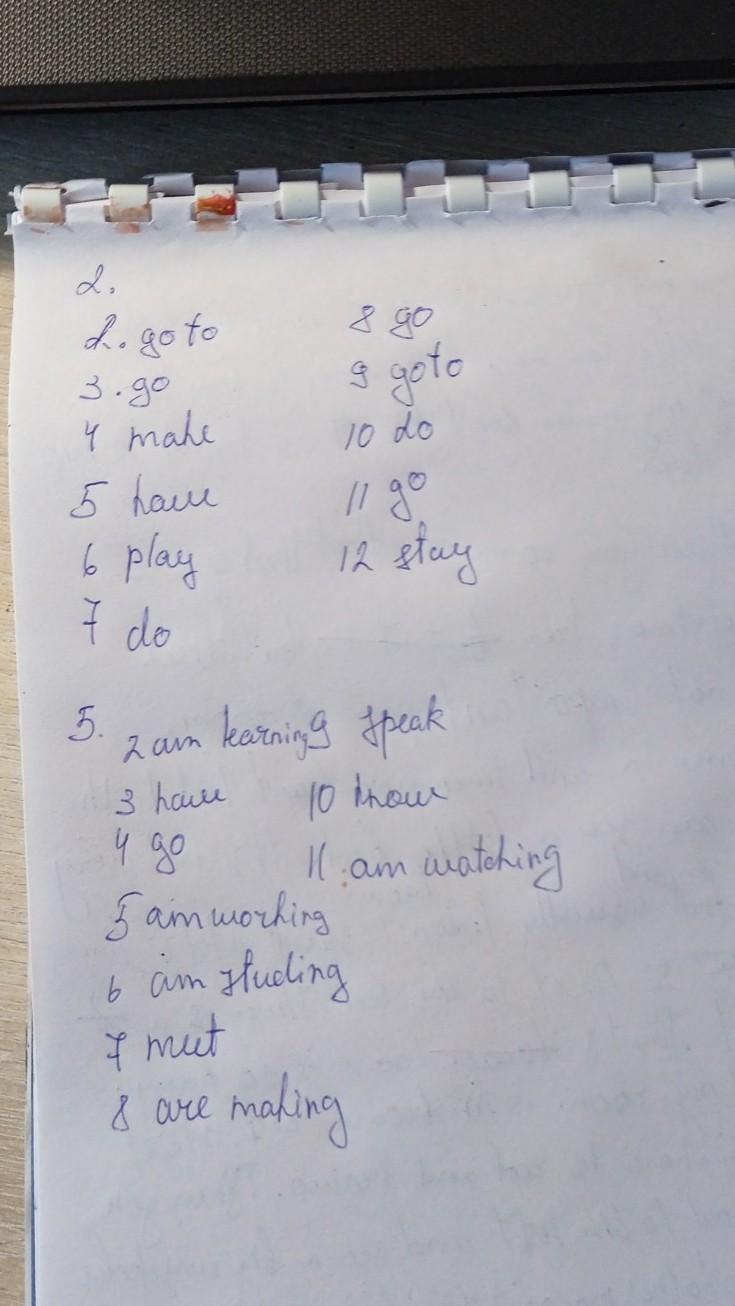 2.
2. go to
3. go
4 make
5 have
6 play
7 do
8 go
9 go to
10 do
11 go
12 stay
5.
2 am learning
3 have
4 go
5 am working
6 am studing
7 meet
8 are making
9 speak
10 know
11. am watching